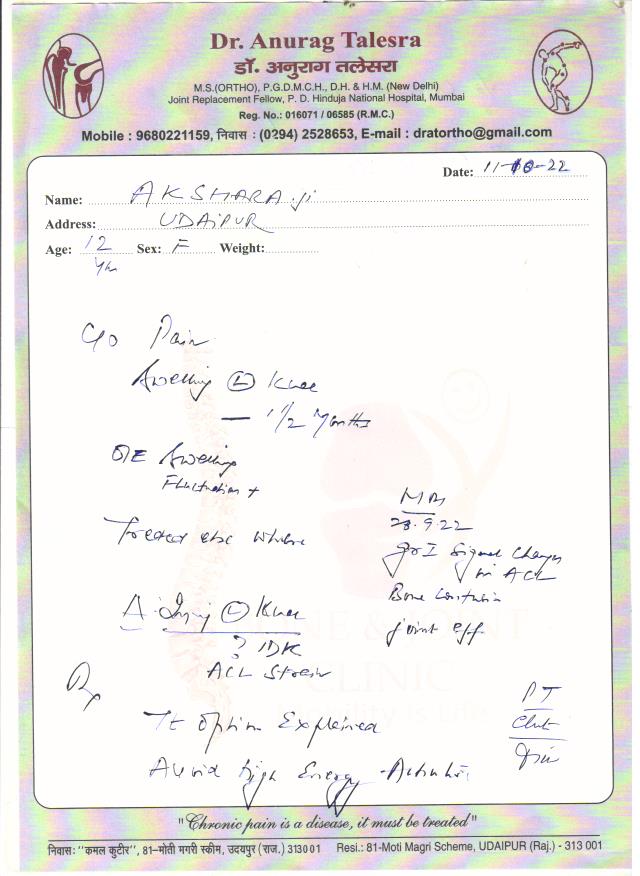 Dr. Anurag Talesra
डॉ. अनुराग तलेसरा
M.S.(ORTHO), P.G.D.M.C.H., D.H. & H.M. (New Delhi)
Joint Replacement Fellow, P. D. Hinduja National Hospital, Mumbai
Reg. No.: 016071 / 06585 (R.M.C.)
Mobile : 9680221159, निवास : (0294) 2528653, E-mail : dratortho@gmail.com
Date: 11-10-22
Name: AKSHARA ji
Address: UDAIPUR
Age: 12 Yrs Sex: F Weight:
C/o Pain
Swelling (L) Knee
— 1 1/2 Months
O/E Swelling
Fluctuation +
Treated else where
MRI
23.9.22
gr I Signal Changes
in ACL
Bone Contusion
joint eff
Δ Injury (L) Knee
? IDK
ACL Strain
Rx
Tt Option Explained
Avoid high Energy Activities
PT
BONE & JOINT
CLINIC
Mobility is Life
"Chronic pain is a disease, it must be treated"
निवास: "कमल कुटीर", 81-मोती मगरी स्कीम, उदयपुर (राज.) 313001 Resi.: 81-Moti Magri Scheme, UDAIPUR (Raj.) - 313 001